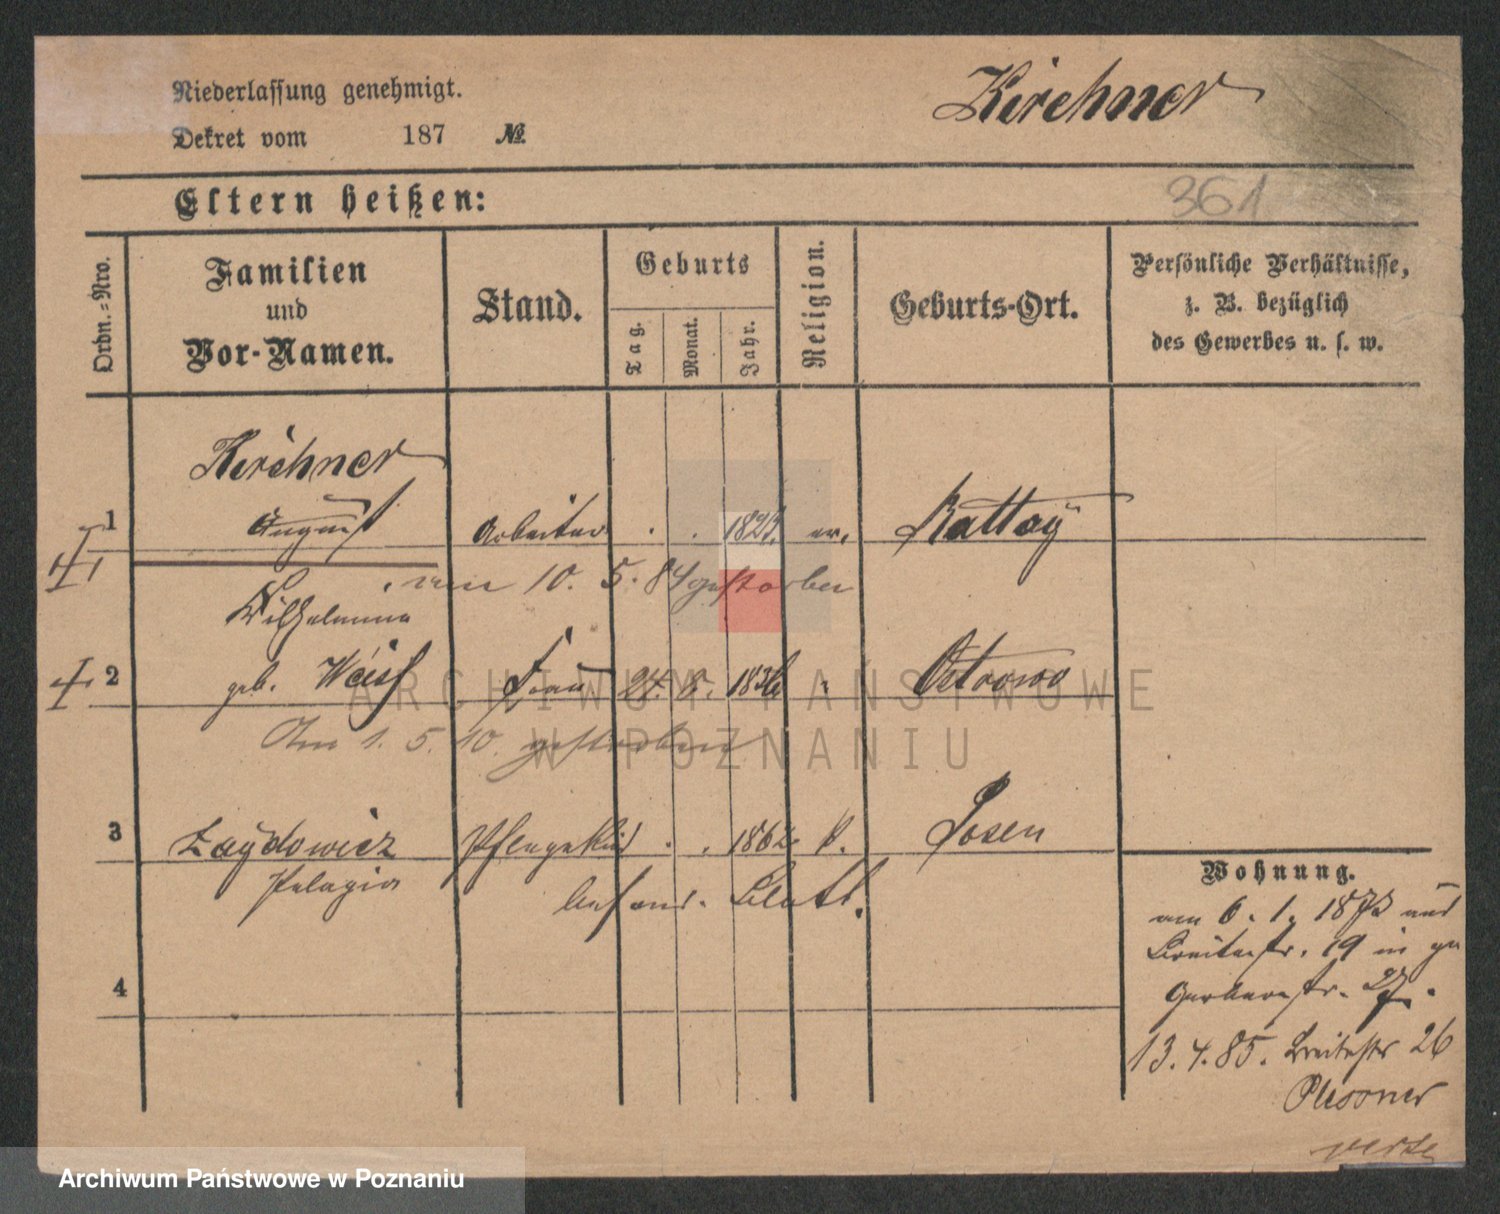 Niederlassung genehmigt.
Kirchner
Dekret vom 187 №
361
Eltern heißen:
Ordn.-Nro.
Familien und Vor-Namen.
Stand.
Geburts
Tag.
Monat.
Jahr.
Religion.
Geburts-Ort.
Persönliche Verhältnisse,
z. B. bezüglich
des Gewerbes u. s. w.
Kirchner
1 August Arbeiter . . 182 ev. Rattay
am 10. 5. 84 gestorben
Wilhelmine
2 geb. Weiss Frau 24. 1836 " Ostrowo
Am 1. 5. 10. gestorben
3 Zaydowicz Pflegekind . . 1862 k. Posen
Pelagia
bes. Blatt.
4
Wohnung.
am 6. 1. 1873 aus
Breitestr. 19 in
Gerberstr. 27.
13. 4. 85. Breitestr 26
Plessner
ARCHIWUM PAŃSTWOWE
W POZNANIU
Archiwum Państwowe w Poznaniu